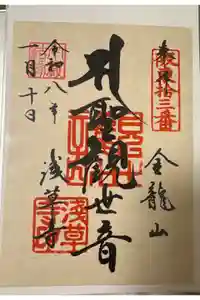 坂東拾三番
金龍山
聖観世音
浅草寺
令和八年
一月十日
浅草寺